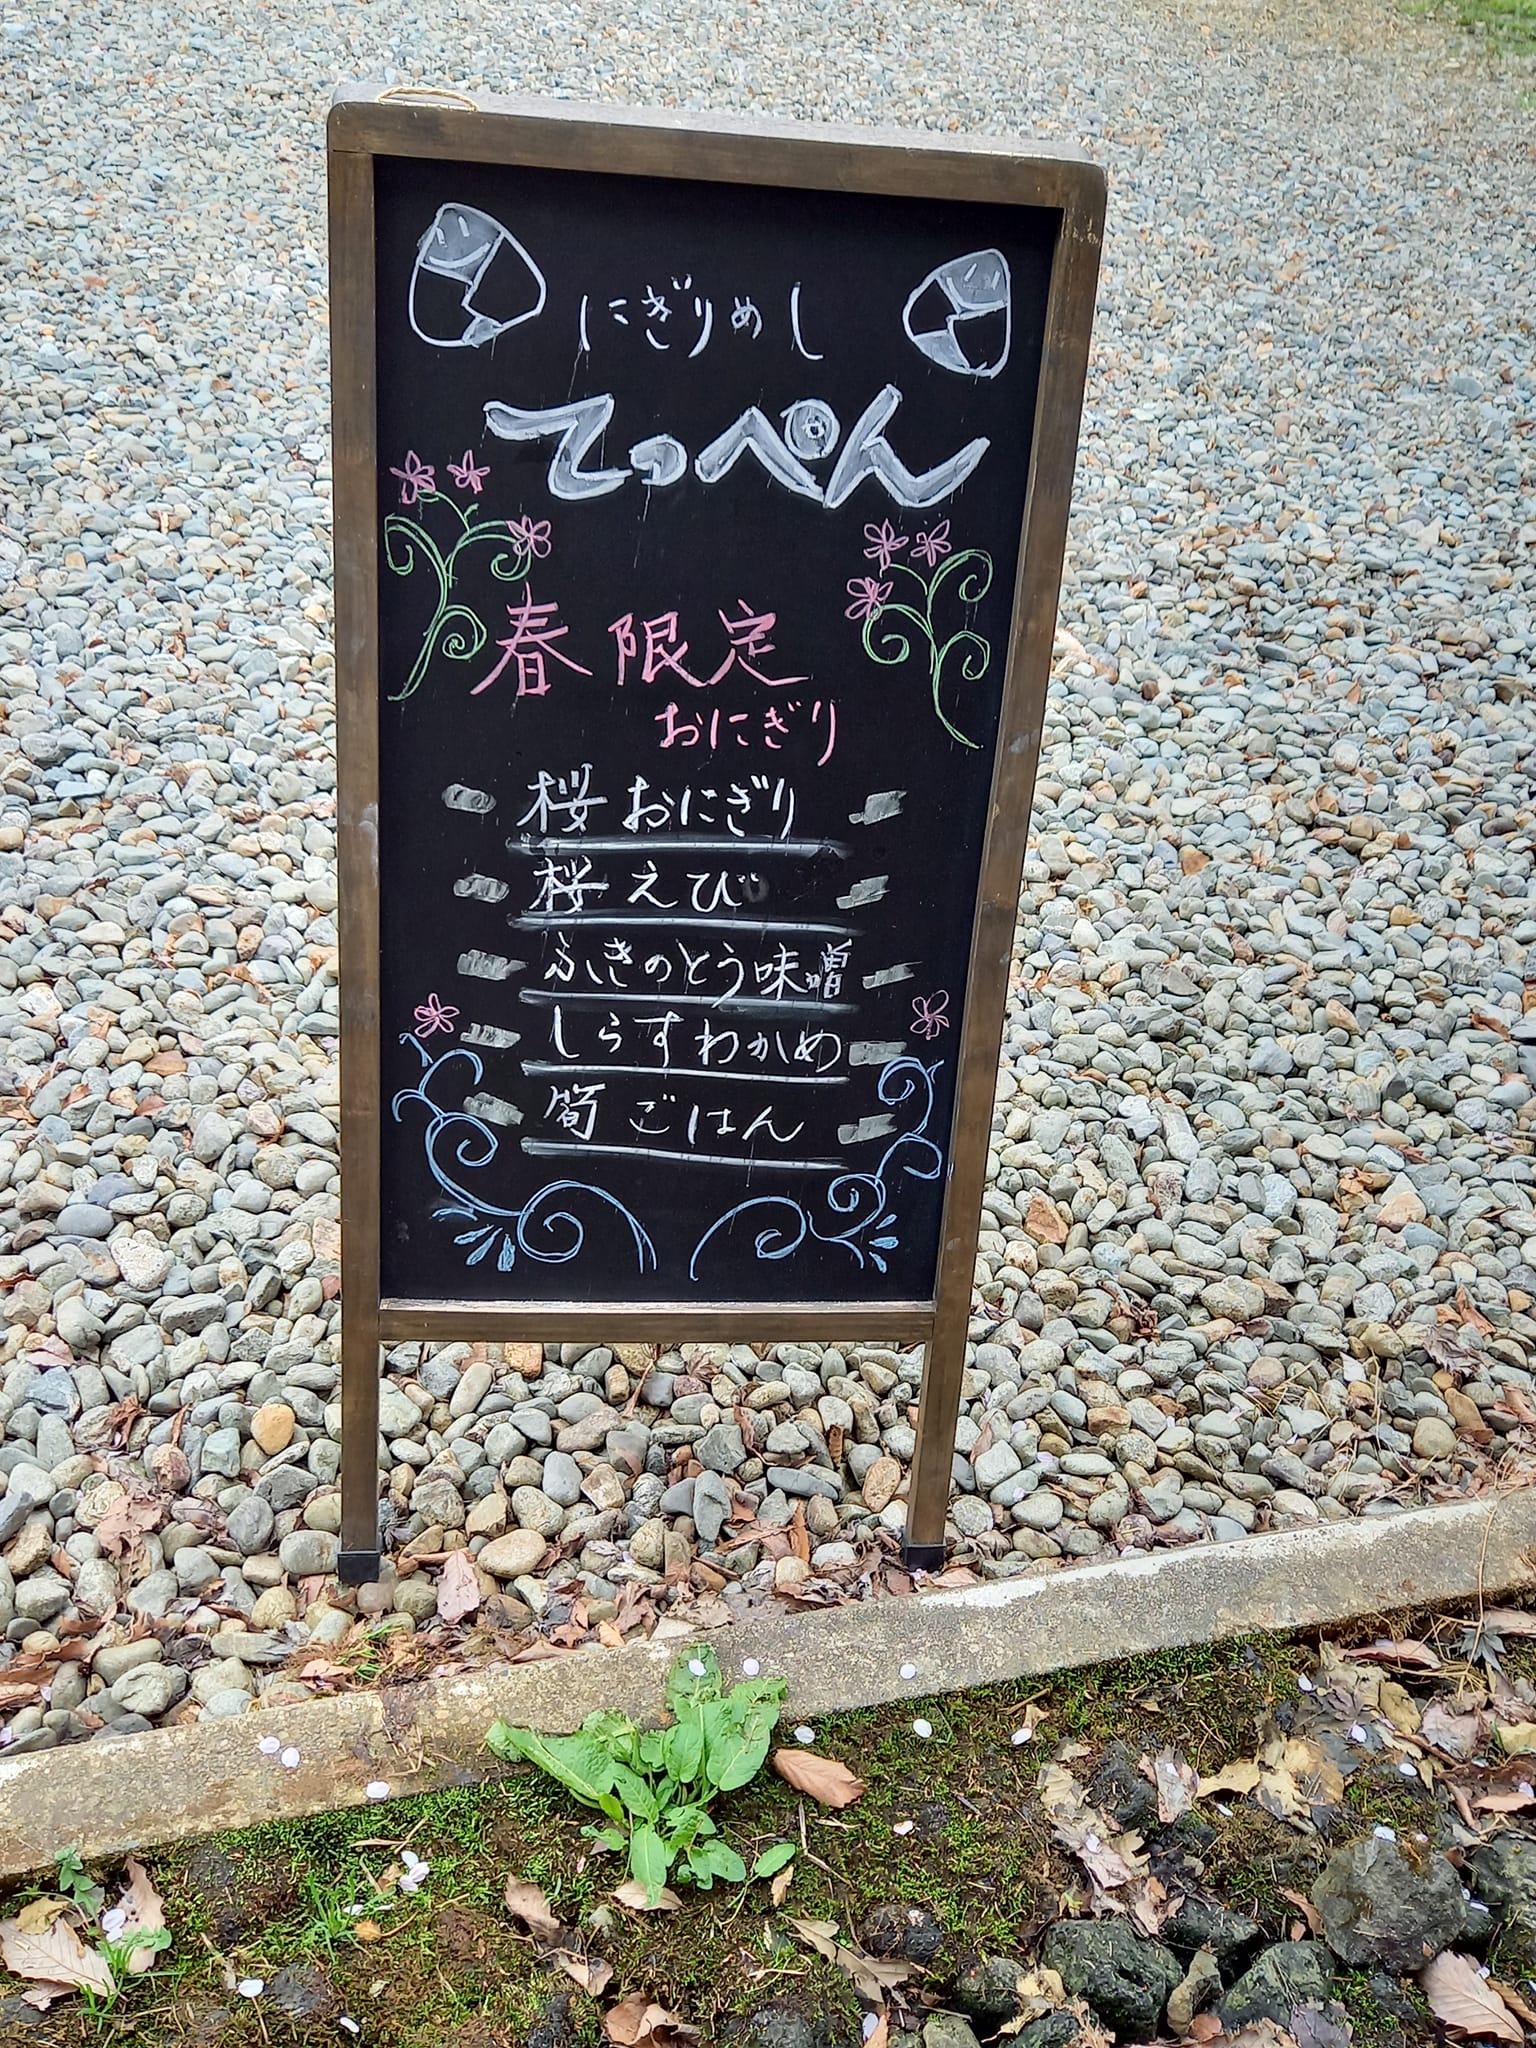 にぎりめし
てっぺん
春限定
おにぎり
桜おにぎり
桜えび
ふきのとう味噌
しらすわかめ
筍ごはん